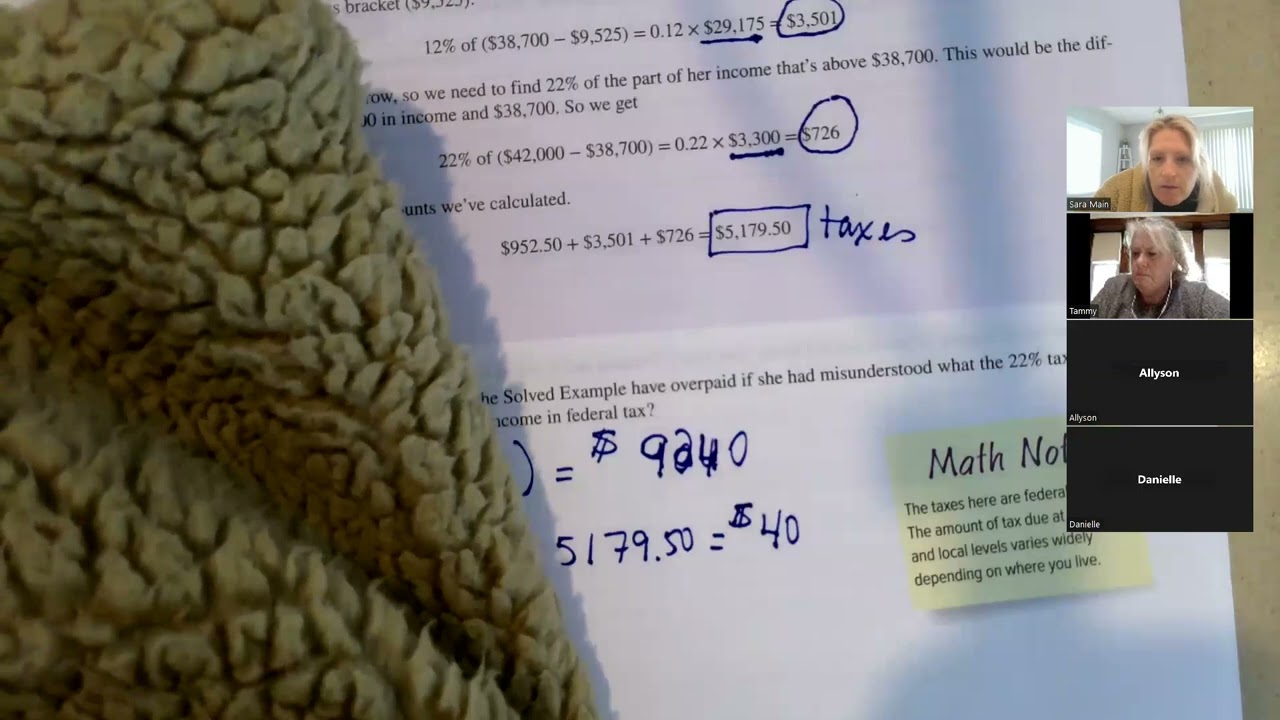 s bracket ($9,525).
12% of ($38,700 – $9,525) = 0.12 × $29,175 = $3,501
row, so we need to find 22% of the part of her income that's above $38,700. This would be the dif-
00 in income and $38,700. So we get
22% of ($42,000 – $38,700) = 0.22 × $3,300 = $726
unts we've calculated.
$952.50 + $3,501 + $726 = $5,179.50 taxes
he Solved Example have overpaid if she had misunderstood what the 22% tax
ncome in federal tax?
) = $ 9240
5179.50 = $40
Math Not
The taxes here are federa
The amount of tax due at
and local levels varies widely
depending on where you live.
Sara Main
Tammy
Allyson
Allyson
Danielle
Danielle